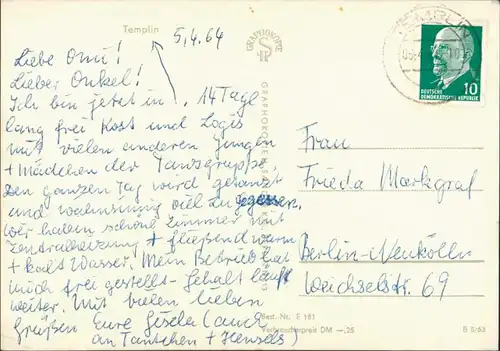 Templin
5,4.64
Liebe Omi!
Lieber Onkel!
Ich bin jetzt in ↑, 14 Tage
lang frei Kost und Logis
mit vielen anderen Jungen
+ Mädchen der Tanzgruppe,
den ganzen Tag wird getanzt
und wahnsinnig viel gegessen.
Wir haben schöne Zimmer mit
Zentralheizung + fließend warm
+ kalt Wasser. Mein Betrieb hat
mich frei gestellt - Gehalt läuft
weiter. Mit vielen lieben
Grüßen Eure Gisela (auch
an Tantchen + Hensels)
GRAPHOKOPIE
10
DEUTSCHE
DEMOKRATISCHE REPUBLIK
Frau
Frieda Markgraf
Berlin-Neukölln
Weichselstr. 69
Best.-Nr. E 181
Verbraucherpreis DM -,25
B 5/63